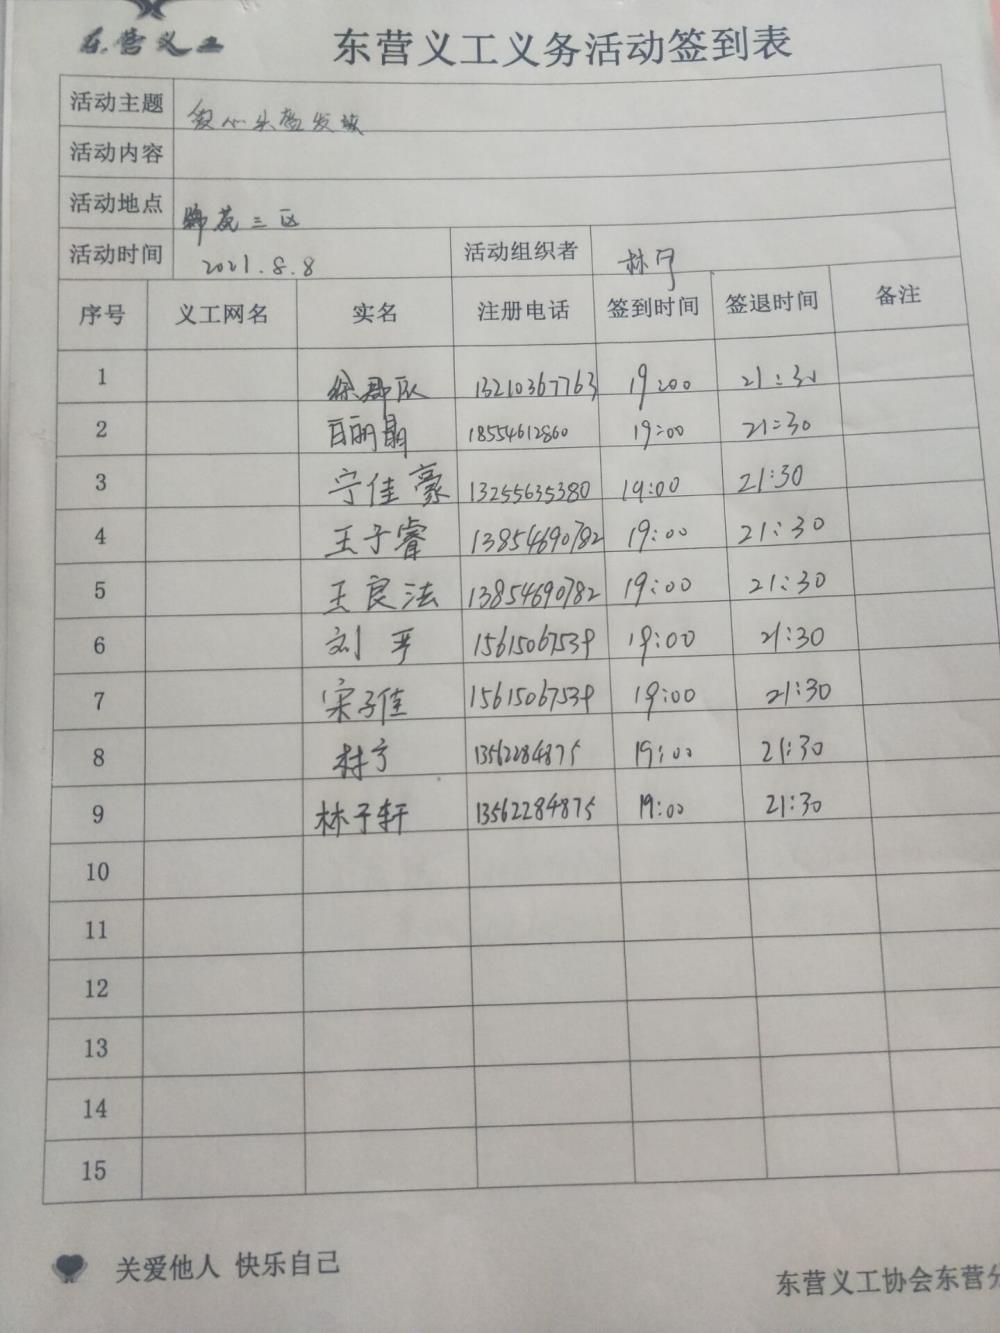 东营义工 东营义工义务活动签到表
活动主题 爱心头盔发放
活动内容
活动地点 锦苑三区
活动时间 2021.8.8 活动组织者 林宁
序号 义工网名 实名 注册电话 签到时间 签退时间 备注
1 13210367763 19:00 21:30
2 18554612860 19:00 21:30
3 宁佳豪 13255635380 19:00 21:30
4 王子睿 13854690782 19:00 21:30
5 王良法 13854690782 19:00 21:30
6 刘平 15615067539 19:00 21:30
7 宋子佳 15615067539 19:00 21:30
8 林宁 13562284875 19:00 21:30
9 林子轩 13562284875 19:00 21:30
10
11
12
13
14
15
关爱他人 快乐自己
东营义工协会东营分